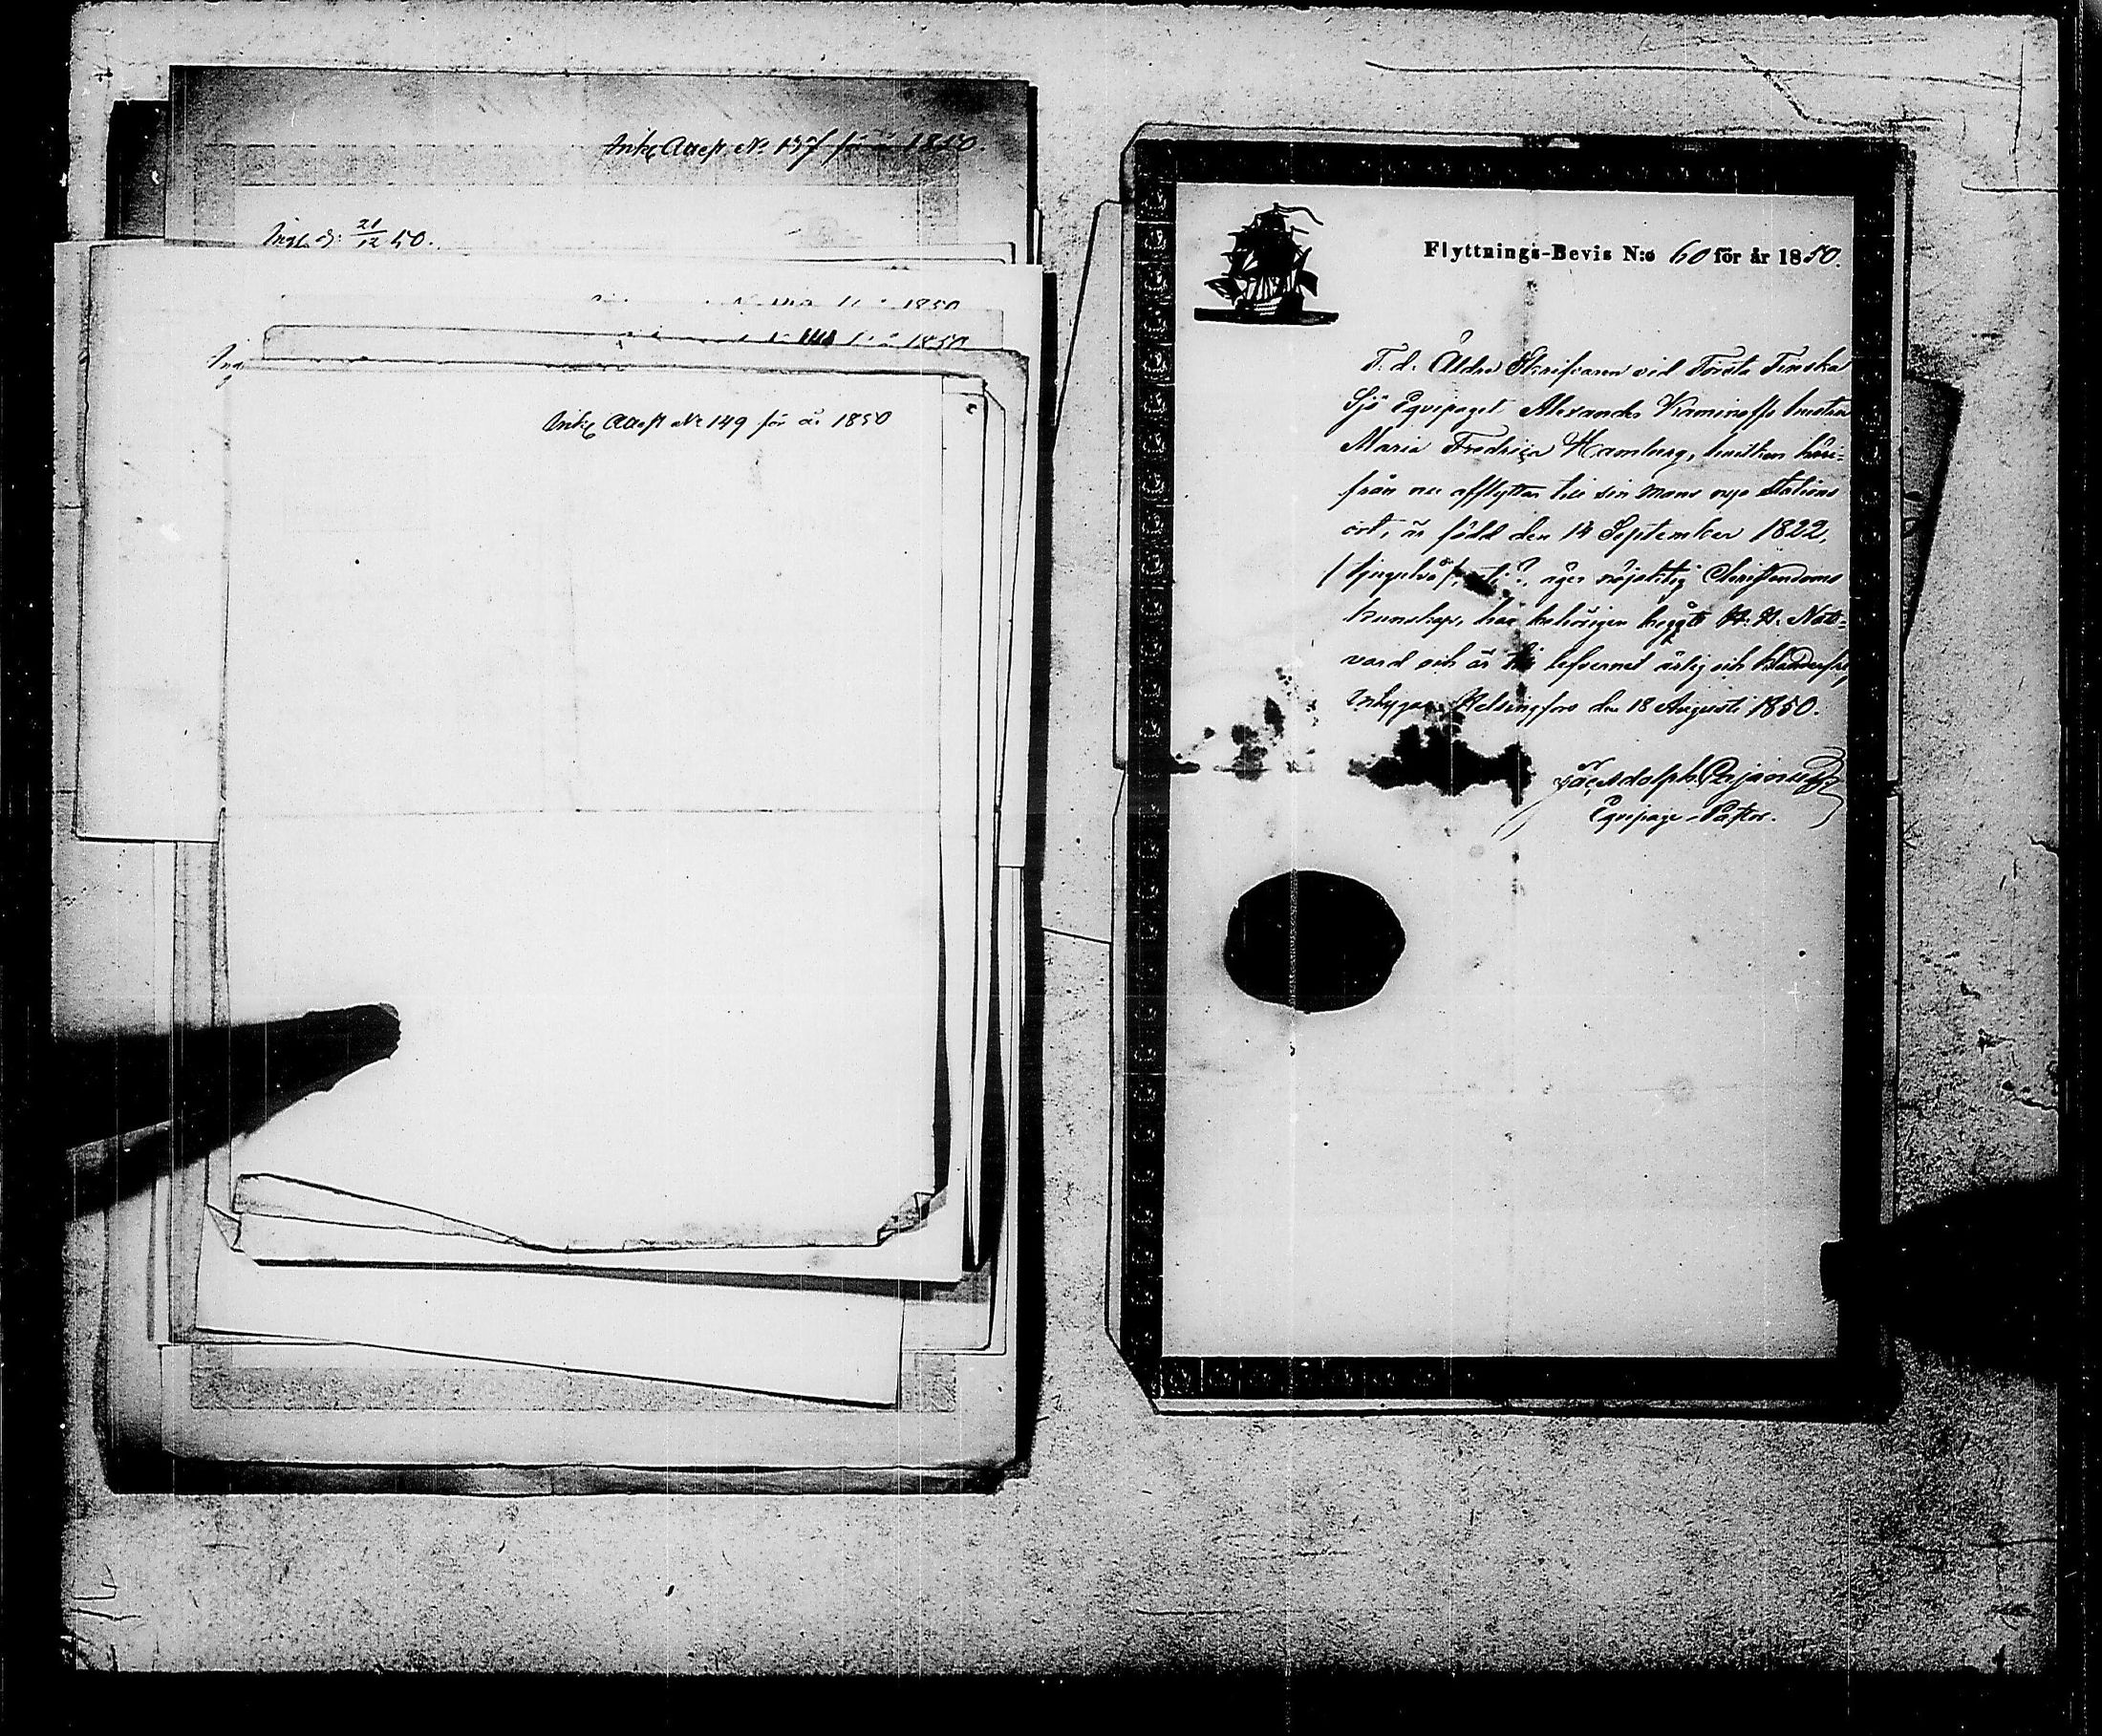 Ink. Attest No 157 för år 1850.
Ingl. d: 21/12 50.
1850
1850
Ink. Attest No 149 för år 1850
Flyttnings-Bevis N:o 60 för år 1850.
F. d. Äldre Skrifvaren vid Första Finska
Sjö Eqvipaget Alexander Kamineffs hustru
Maria Fredrica Hamberg, hvilken häri-
från nu afflyttar till sin mans nya Stations
ort, är född den 14 September 1822,
/tjugutvå/ äger nöjaktig Christendoms
kunskap, har behörigen begått H. H. Natt-
vard och är till lefvernet ärlig och
Helsingfors den 18 Augusti 1850.
Adolph
Eqvipage-Pastor.